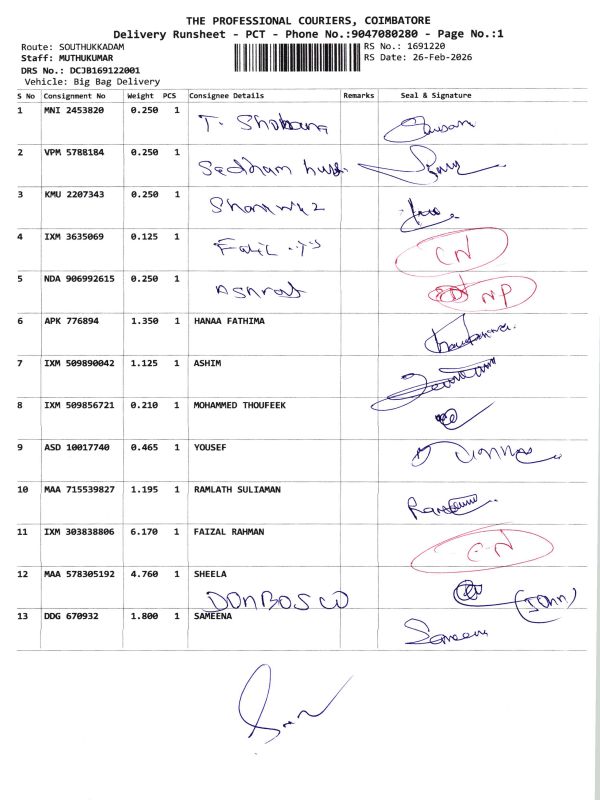 THE PROFESSIONAL COURIERS, COIMBATORE
Delivery Runsheet - PCT - Phone No.:9047080280 - Page No.:1
Route: SOUTHUKKADAM
RS No.: 1691220
Staff: MUTHUKUMAR
RS Date: 26-Feb-2026
DRS No.: DCJB169122001
Vehicle: Big Bag Delivery
S No Consignment No Weight PCS Consignee Details Remarks Seal & Signature
1 MNI 2453820 0.250 1 T. Shobana
2 VPM 5788184 0.250 1 Seddham
3 KMU 2207343 0.250 1
4 IXM 3635069 0.125 1 CN
5 NDA 906992615 0.250 1 Ashrat NP
6 APK 776894 1.350 1 HANAA FATHIMA
7 IXM 509890042 1.125 1 ASHIM
8 IXM 509856721 0.210 1 MOHAMMED THOUFEEK
9 ASD 10017740 0.465 1 YOUSEF
10 MAA 715539827 1.195 1 RAMLATH SULIAMAN
11 IXM 303838806 6.170 1 FAIZAL RAHMAN CN
12 MAA 578305192 4.760 1 SHEELA
DONBOSCO (John)
13 DDG 670932 1.800 1 SAMEENA Sameena